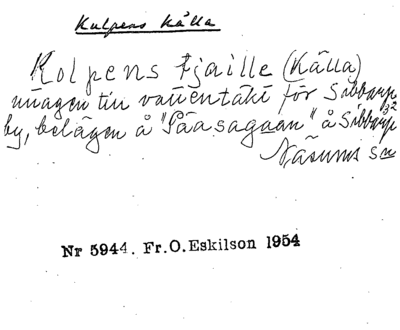 Kulpens Källa
Kolpens fjaille (Källa)
till vattentäkt för Sibbarp
by, belägen å "Påasagaan" å Sibbarp 32
Näsums sn
Nr 5944. Fr.O.Eskilson 1954